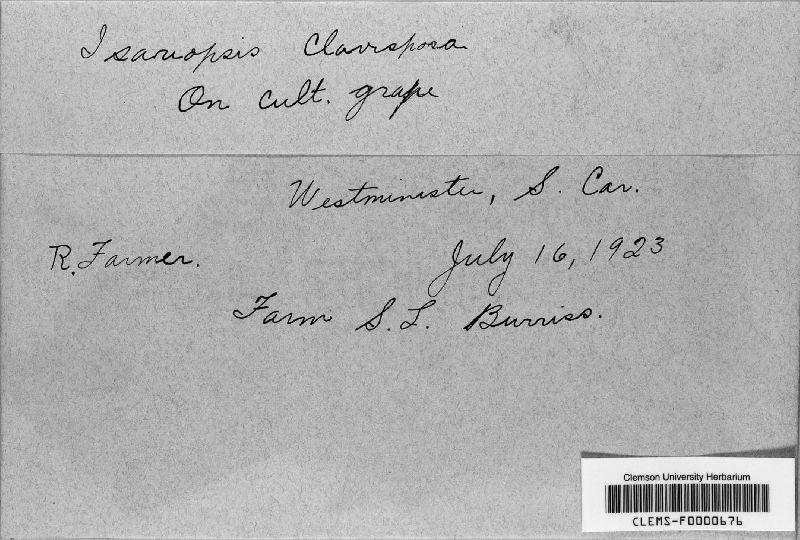 Isariopsis Clavispora
On cult. grape
Westminister, S. Car.
R. Farmer.
July 16, 1923
Farm S. L. Burriss.
Clemson University Herbarium
CLEMS-F0000676